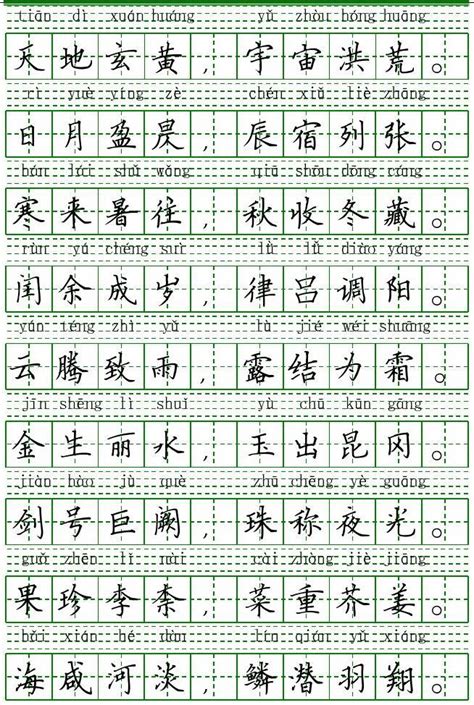 tiān dì xuán huáng yǔ zhòu hóng huāng
天地玄黄，宇宙洪荒。
rì yuè yíng zè chén xiǔ liè zhāng
日月盈昃，辰宿列张。
hán lái shǔ wǎng qiū shōu dōng cáng
寒来暑往，秋收冬藏。
rùn yú chéng suì lǜ lǚ diào yáng
闰余成岁，律吕调阳。
yún téng zhì yǔ lù jié wéi shuāng
云腾致雨，露结为霜。
jīn shēng lì shuǐ yù chū kūn gāng
金生丽水，玉出昆冈。
jiàn hào jù què zhū chēng yè guāng
剑号巨阙，珠称夜光。
guǒ zhēn lǐ nài cài zhòng jiè jiāng
果珍李柰，菜重芥姜。
hǎi xián hé dàn lín qián yǔ xiáng
海咸河淡，鳞潜羽翔。